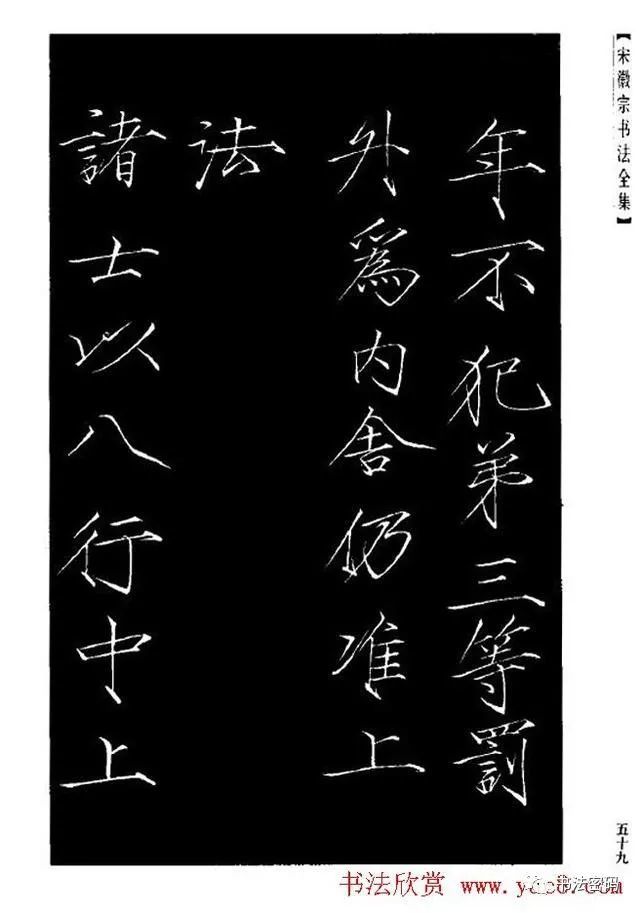 【宋徽宗书法全集】
年不犯弟三等罰
外爲内舍仍准上
法
諸士以八行中上
五十九
书法欣赏 www.
书法密码